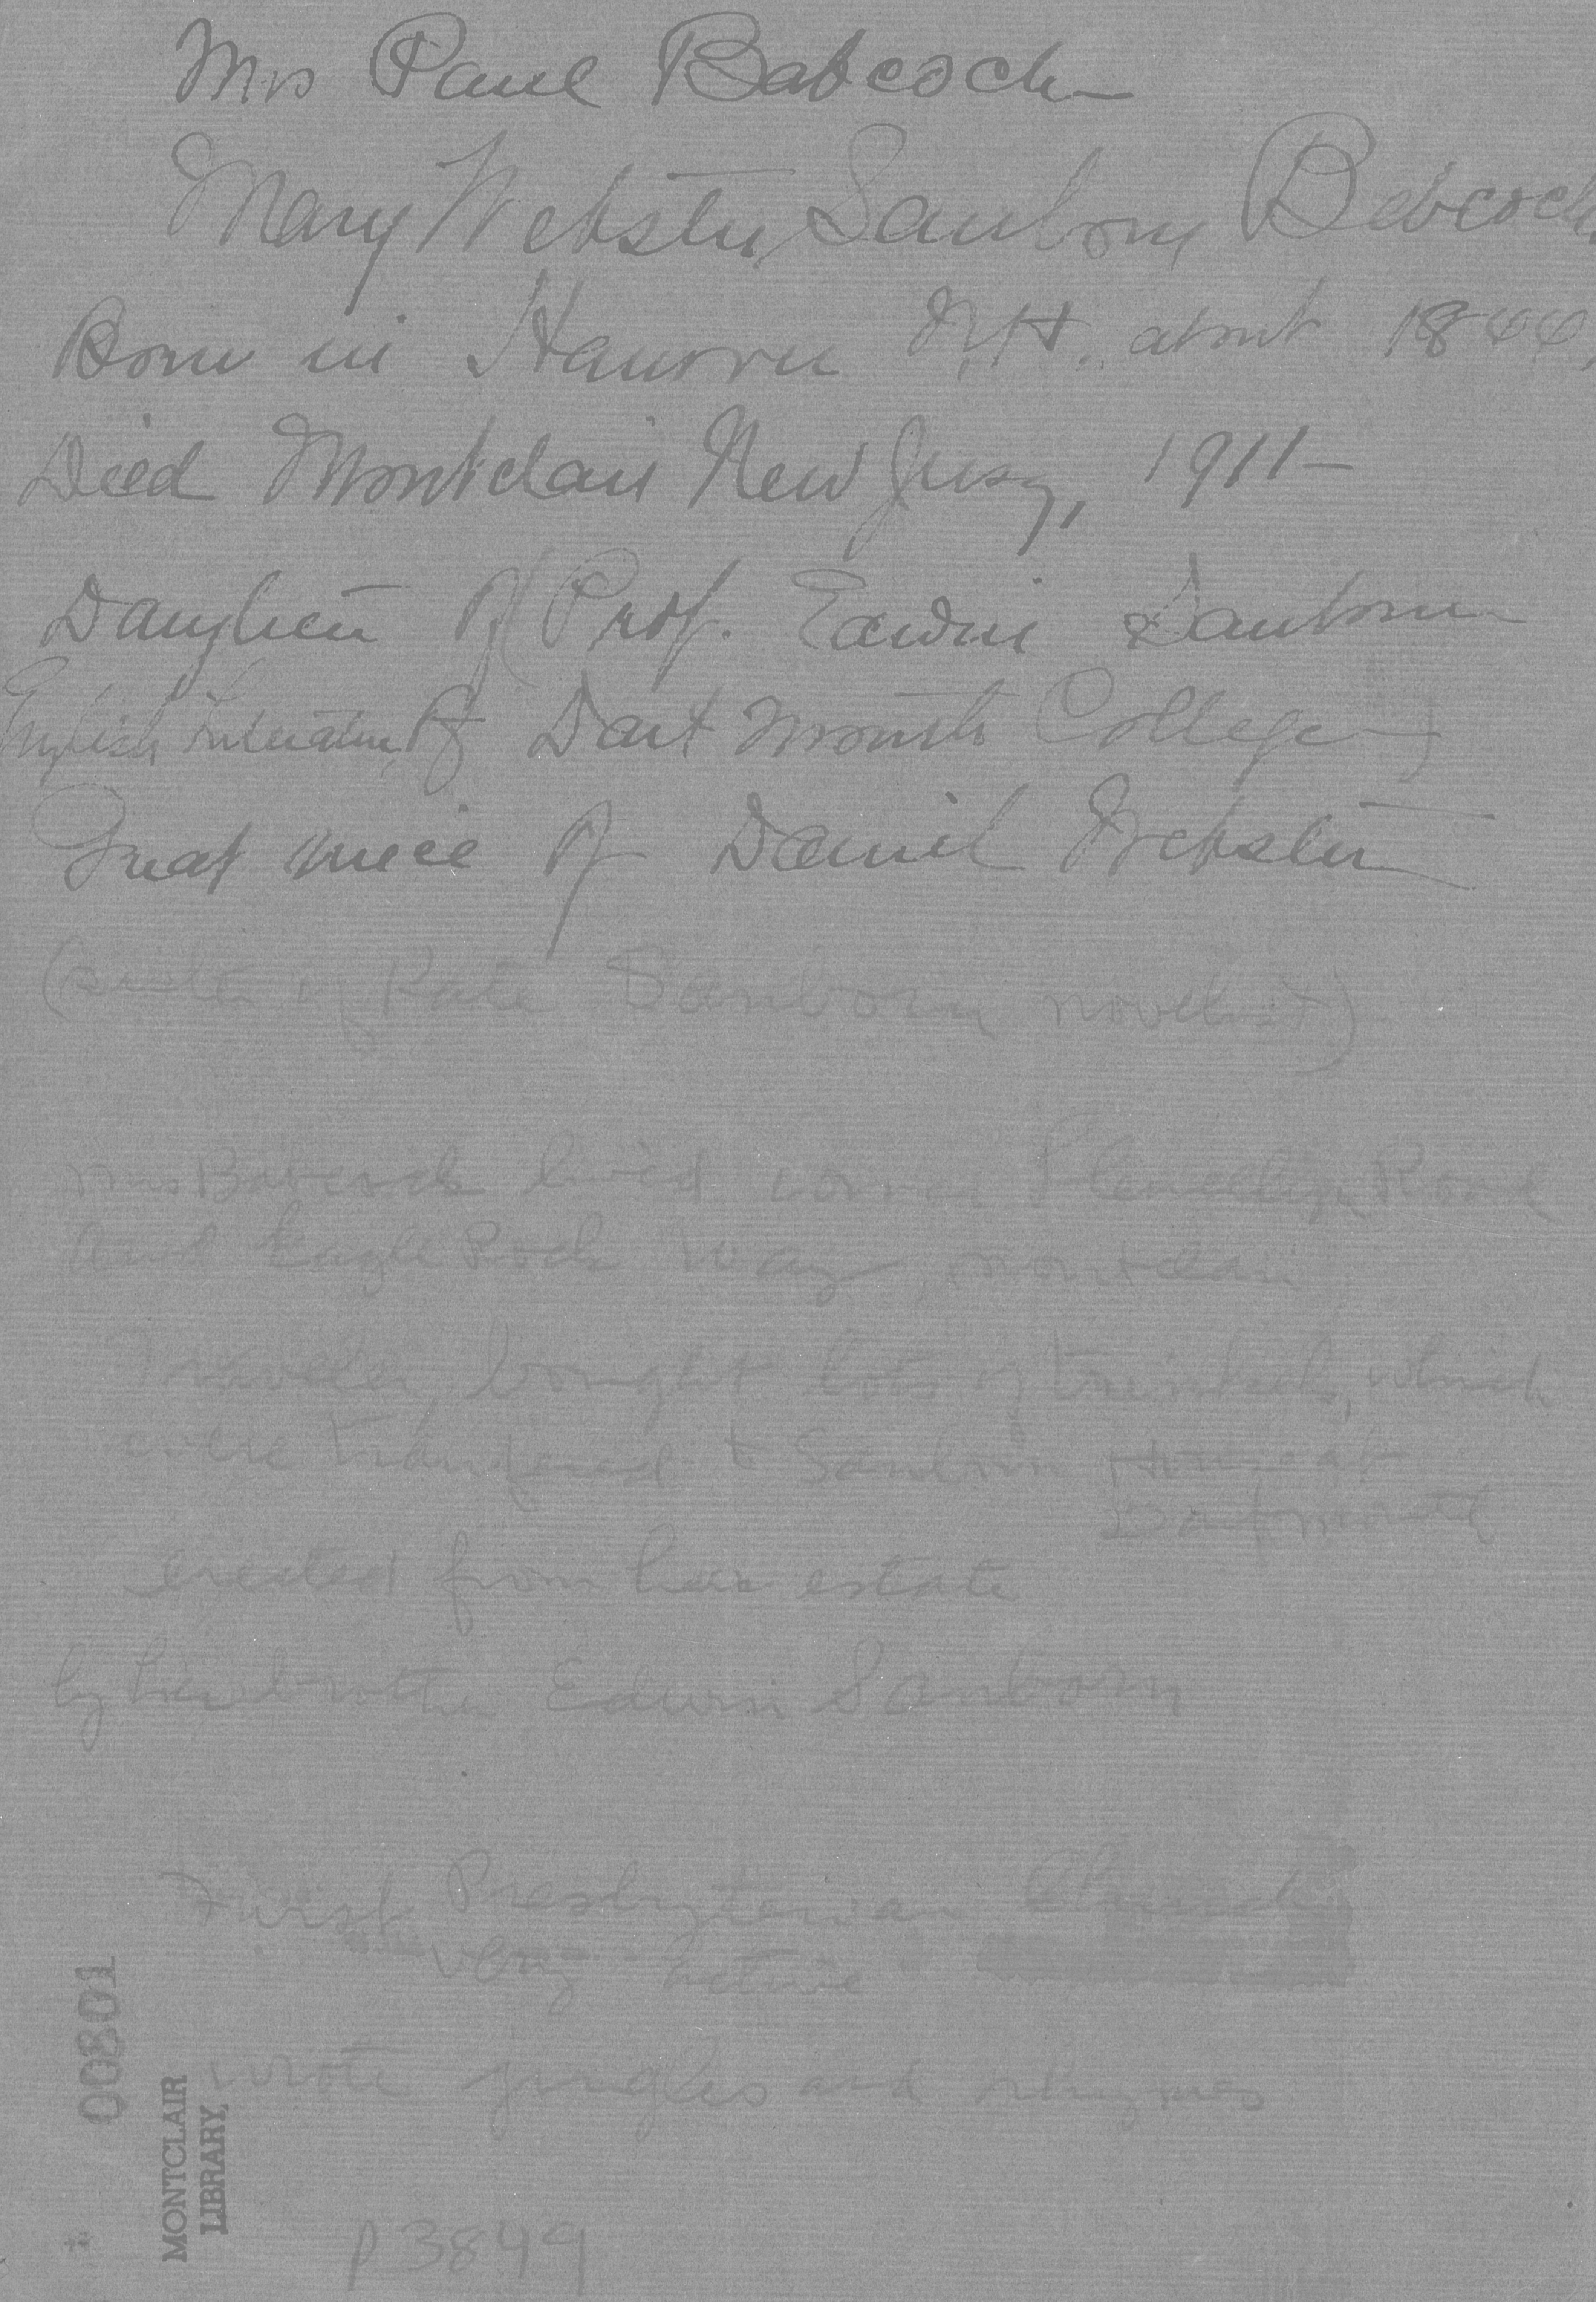 Mrs Paul Babcock
Mary Webster Sanborn Babcock
Born in Hanover N.H. about 1844,
Died Montclair New Jersey, 1911–
Daughter of Prof. Edwin Sanborn
English Literature of Dartmouth College)
Great niece of Daniel Webster
(sister of Kate Sanborn novelist)
Mrs Babcock lived corner Llewellyn Road
and Eagle Rock Way, Montclair
Traveller, bought lots of trinkets, which
were transfered to Sanborn House at
Dartmouth
erected from her estate
by her brother Edwin Sanborn
First Presbyterian Church
"very active"
wrote jingles and rhymes
00801
MONTCLAIR
LIBRARY,
p3849